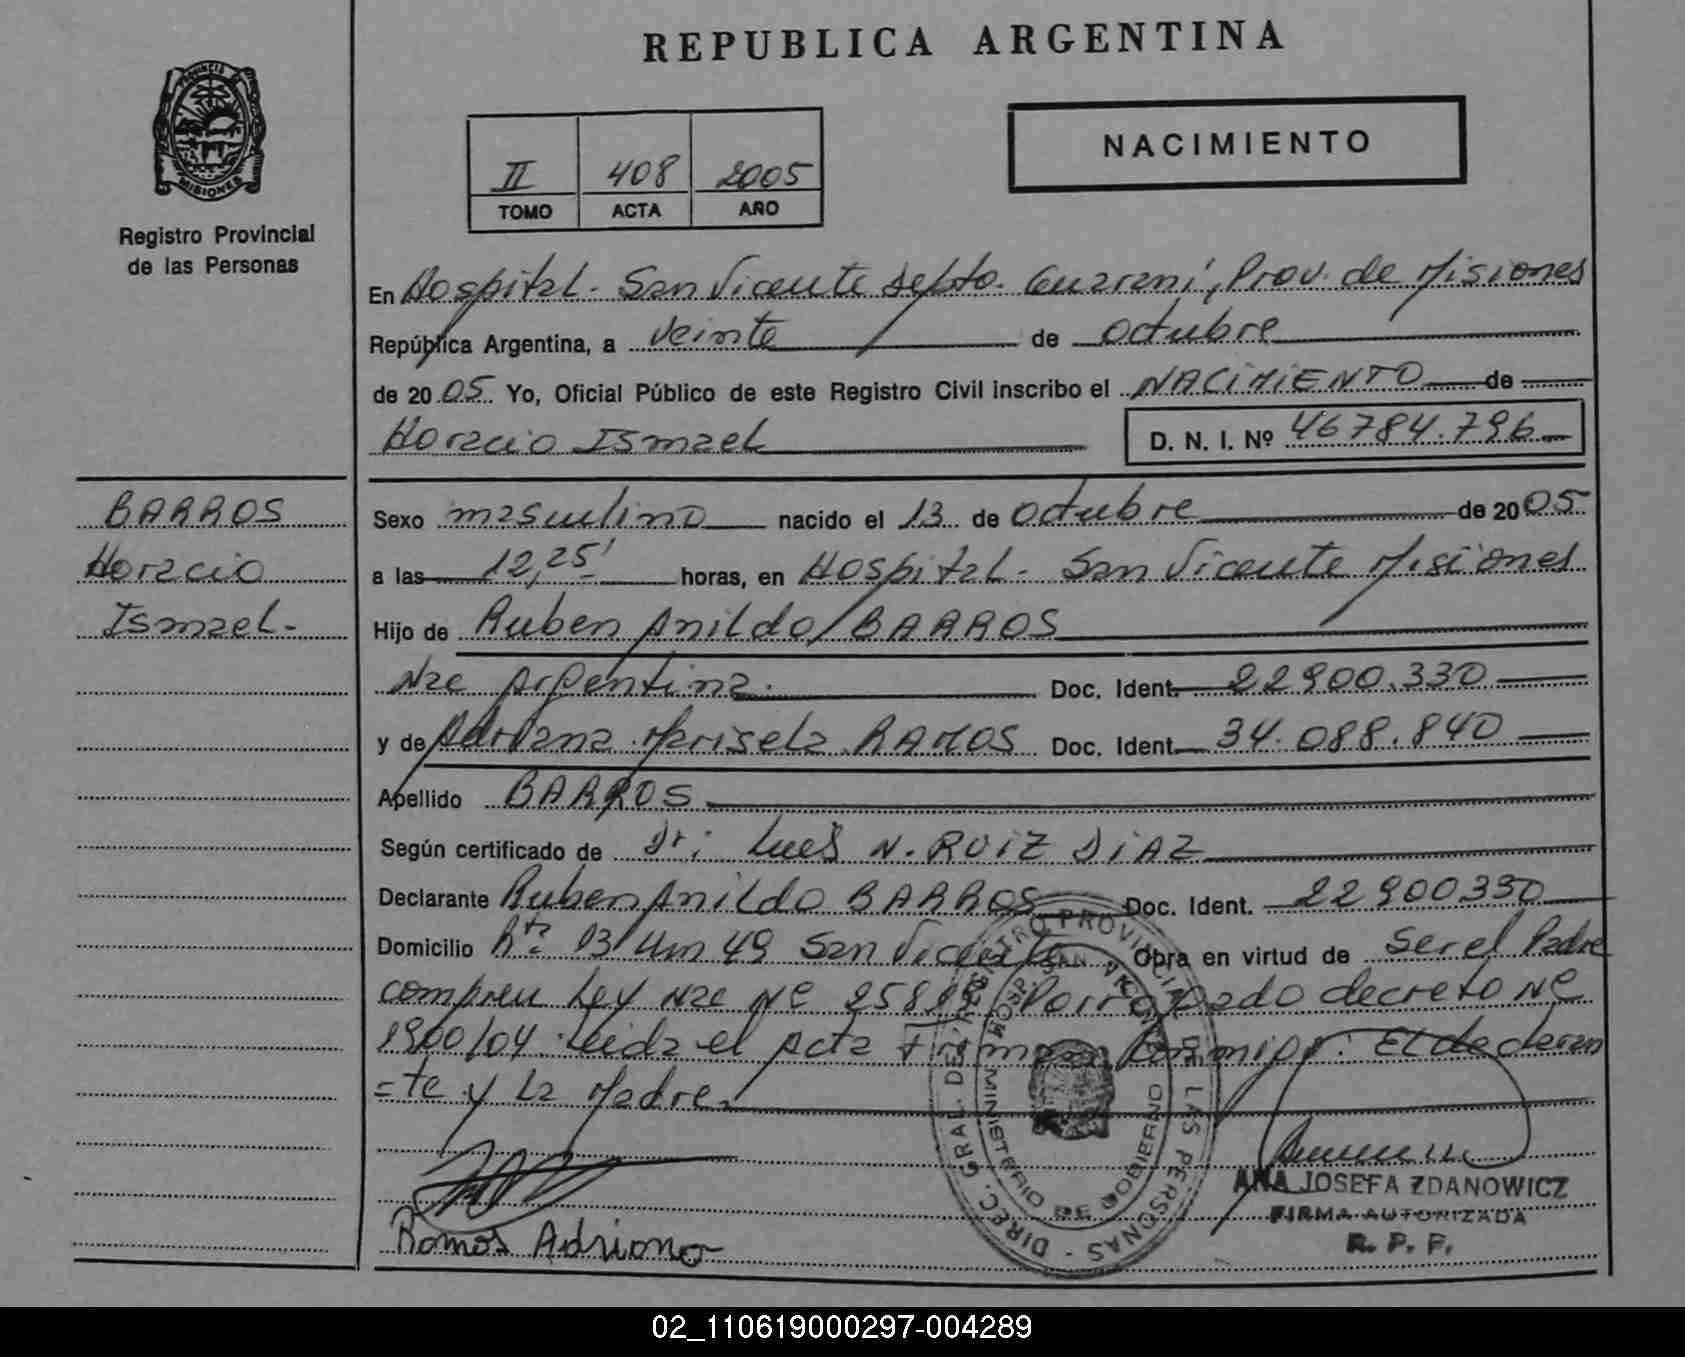 REPUBLICA ARGENTINA
NACIMIENTO
II 408 2005
TOMO ACTA AÑO
PROVINCIA DE
MISIONES
Registro Provincial
de las Personas
En Hospital. San Vicente depto. Guarani, Prov. de Misiones
República Argentina, a veinte de octubre
de 2005 Yo, Oficial Público de este Registro Civil inscribo el NACIMIENTO de
Horacio Ismael D. N. I. Nº 46784.796
BARROS
Horacio
Ismael.
Sexo masculino nacido el 13 de octubre de 2005
a las 12,25' horas, en Hospital. San Vicente Misiones
Hijo de Ruben Anildo BARROS
Nac Argentina. Doc. Ident. 22900.330
y de Adriana Marisela RAMOS Doc. Ident. 34.088.840
Apellido BARROS
Según certificado de Dr: Luis N. RUIZ DIAZ
Declarante Ruben Anildo BARROS Doc. Ident. 22900330
Domicilio Rta 13 Km 49 San Vicente Obra en virtud de ser el Padre
Ley Nac Nº decreto Nº
1900/04. Leida el Acta Firman conmigo: El declaran
=te y La Madre.
DIREC. GRAL. DEL REGISTRO PROVINCIAL DE LAS PERSONAS
HOSP. SAN VICENTE
MINISTERIO DE GOBIERNO
Ramos Adriana
ANA JOSEFA ZDANOWICZ
FIRMA AUTORIZADA
R. P. P.
02_110619000297-004289